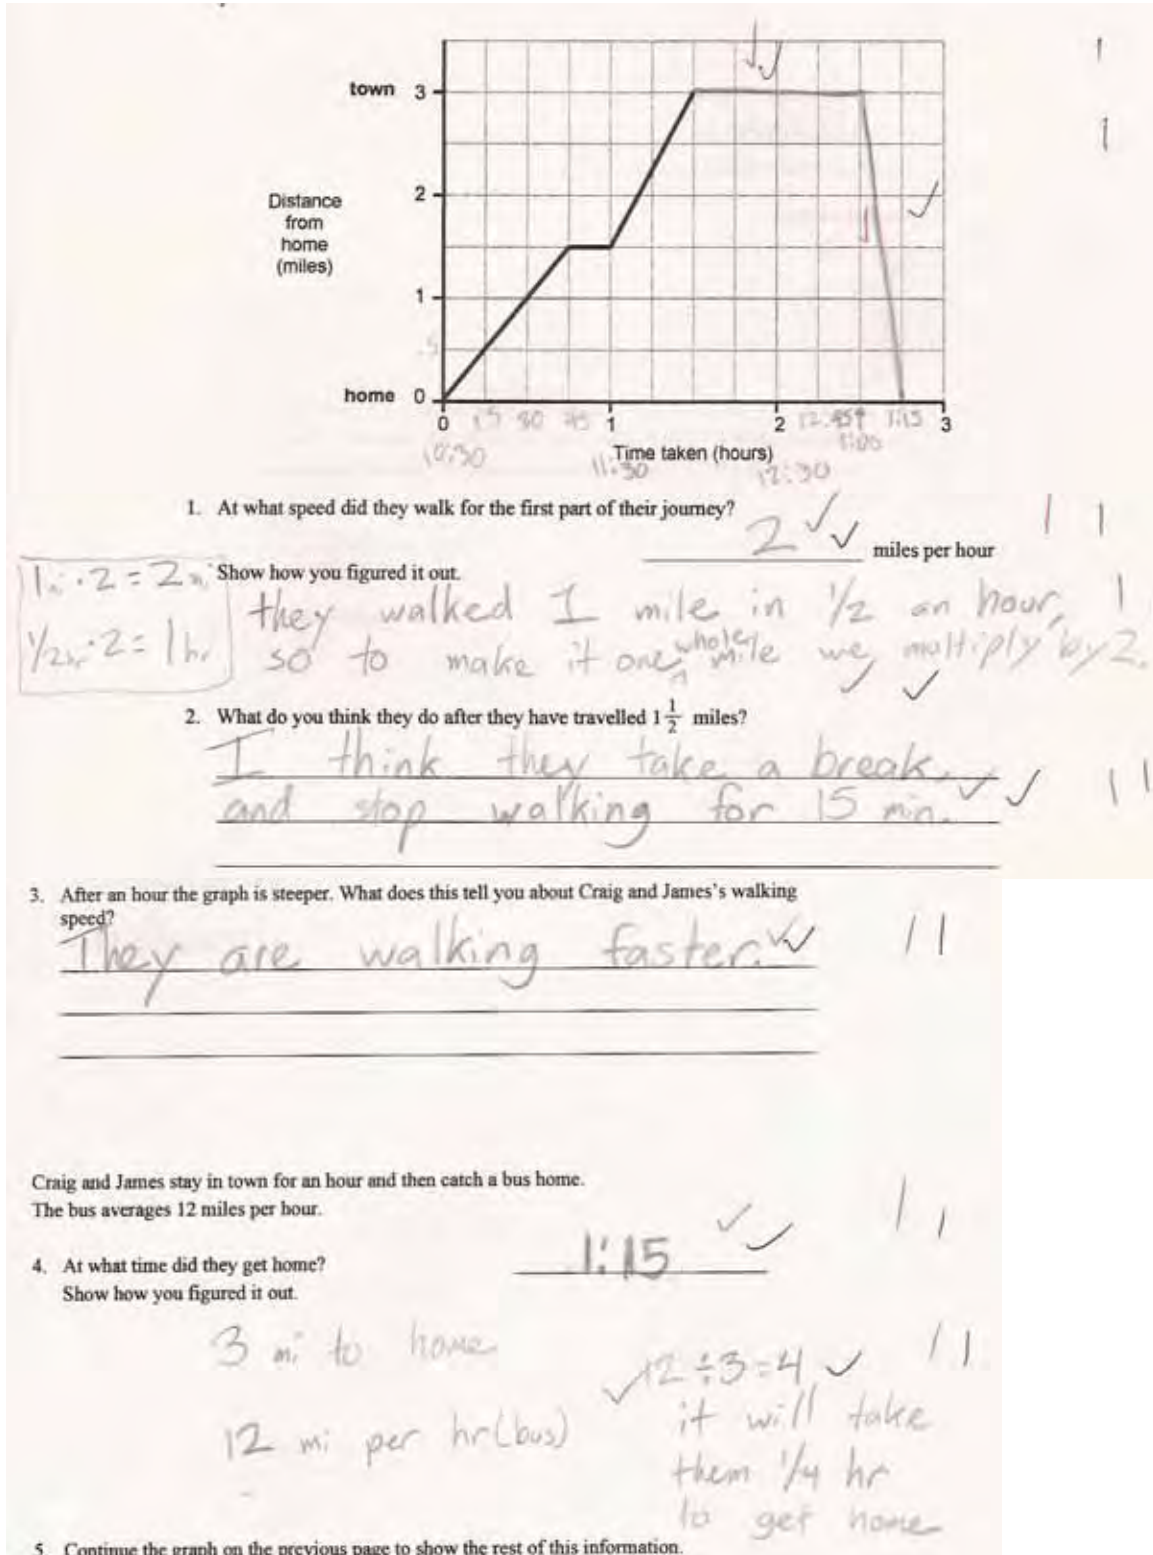 town 3
2
Distance
from
home
(miles)
1
.5
home 0
0 15 30 45 1 2 1:15 3
10:30 11:30 Time taken (hours) 12:30 1:00
1. At what speed did they walk for the first part of their journey?
2 miles per hour
Show how you figured it out.
1 mi · 2 = 2 mi
1/2 hr · 2 = 1 hr
they walked 1 mile in 1/2 an hour,
so to make it one whole mile we multiply by 2.
2. What do you think they do after they have travelled 1 1/2 miles?
I think they take a break,
and stop walking for 15 min.
3. After an hour the graph is steeper. What does this tell you about Craig and James's walking
speed?
They are walking faster.
Craig and James stay in town for an hour and then catch a bus home.
The bus averages 12 miles per hour.
4. At what time did they get home? 1:15
Show how you figured it out.
3 mi to home
12 mi per hr (bus)
12 ÷ 3 = 4
it will take
them 1/4 hr
to get home
5. Continue the graph on the previous page to show the rest of this information.